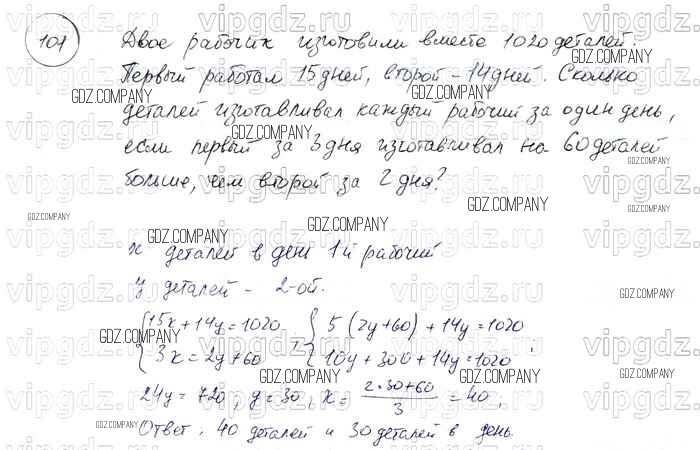 107
Двое рабочих изготовили вместе 1020 деталей.
Первый работал 15 дней, второй - 14 дней. Сколько
деталей изготавливал каждый рабочий за один день,
если первый за 3 дня изготавливал на 60 деталей
больше, чем второй за 2 дня?
x деталей в день 1й рабочий
y деталей - 2-ой.
15x+14y=1020 ; 5(2y+60)+14y=1020
3x=2y+60 10y+300+14y=1020 ;
24y=720 ; y=30, x= (2·30+60)/3 =40,
Ответ. 40 деталей и 30 деталей в день.
vipgdz.ru
GDZ.COMPANY